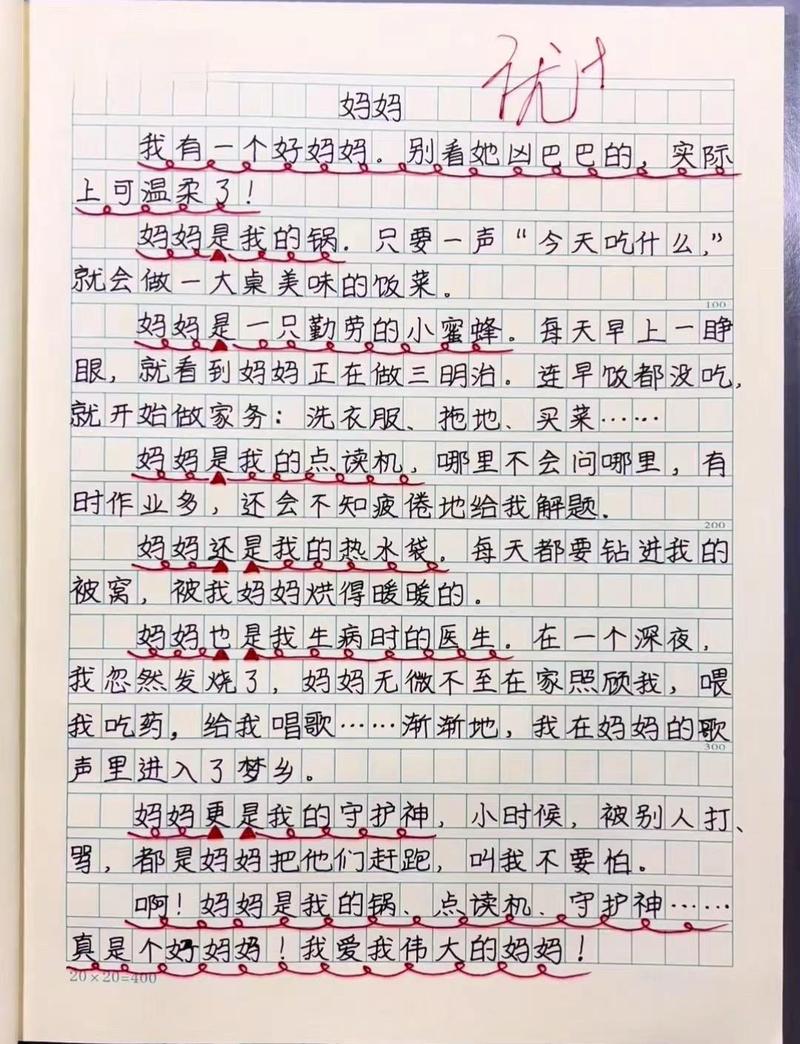 优+
妈妈
我有一个好妈妈.别看她凶巴巴的,实际
上可温柔了!
妈妈是我的锅.只要一声“今天吃什么,”
就会做一大桌美味的饭菜。
100
妈妈是一只勤劳的小蜜蜂。每天早上一睁
眼,就看到妈妈正在做三明治。连早饭都没吃,
就开始做家务:洗衣服、拖地、买菜……
妈妈是我的点读机,哪里不会问哪里,有
时作业多,还会不知疲倦地给我解题.
200
妈妈还是我的热水袋。每天都要钻进我的
被窝,被我妈妈烘得暖暖的。
妈妈也是我生病时的医生。在一个深夜,
我忽然发烧了,妈妈无微不至在家照顾我,喂
我吃药,给我唱歌……渐渐地,我在妈妈的歌
300
声里进入了梦乡。
妈妈更是我的守护神,小时候,被别人打、
骂,都是妈妈把他们赶跑,叫我不要怕。
啊!妈妈是我的锅、点读机、守护神……
真是个好妈妈!我爱我伟大的妈妈!
20×20=400